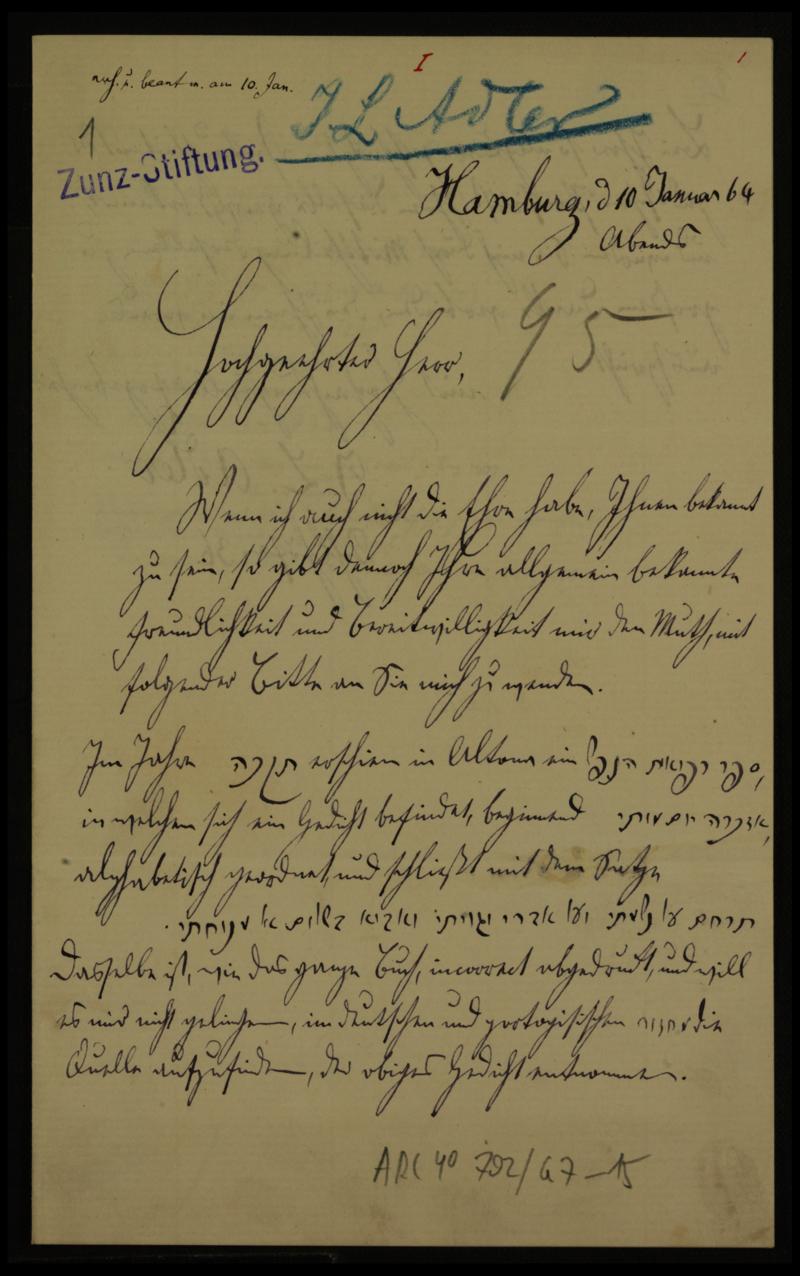 I
erh. u. beantw. am 10. Jan.
J L Adler
1
Zunz-Stiftung.
Hamburg, d 10 Januar 64
Abends
95
Hochgeehrter Herr,
Wenn ich auch nicht die Ehre habe, Ihnen bekannt
zu sein, so gibt dennoch Ihre allgemein bekannte
Freundlichkeit und Bereitwilligkeit mir den Muth, mit
folgender Bitte an Sie mich zu wenden.
Im Jahre erschien in Altona ein ספר רפואות הנפש,
in welchem sich ein Gedicht befindet, beginnend אזכרה יום מותי,
alphabetisch geordnet, und schließt mit dem Satze
תרחם על נשמתי ועל אברי וגויתי ואבוא בשלום אל מנוחתי.
Dasselbe ist, wie das ganze Buch, incorrect abgedruckt, und will
es mir nicht gelingen, im deutschen und portogisischen מחזור die
Quelle aufzufinden, der obiges Gedicht entnommen.
ARC 4° 792/G7-15